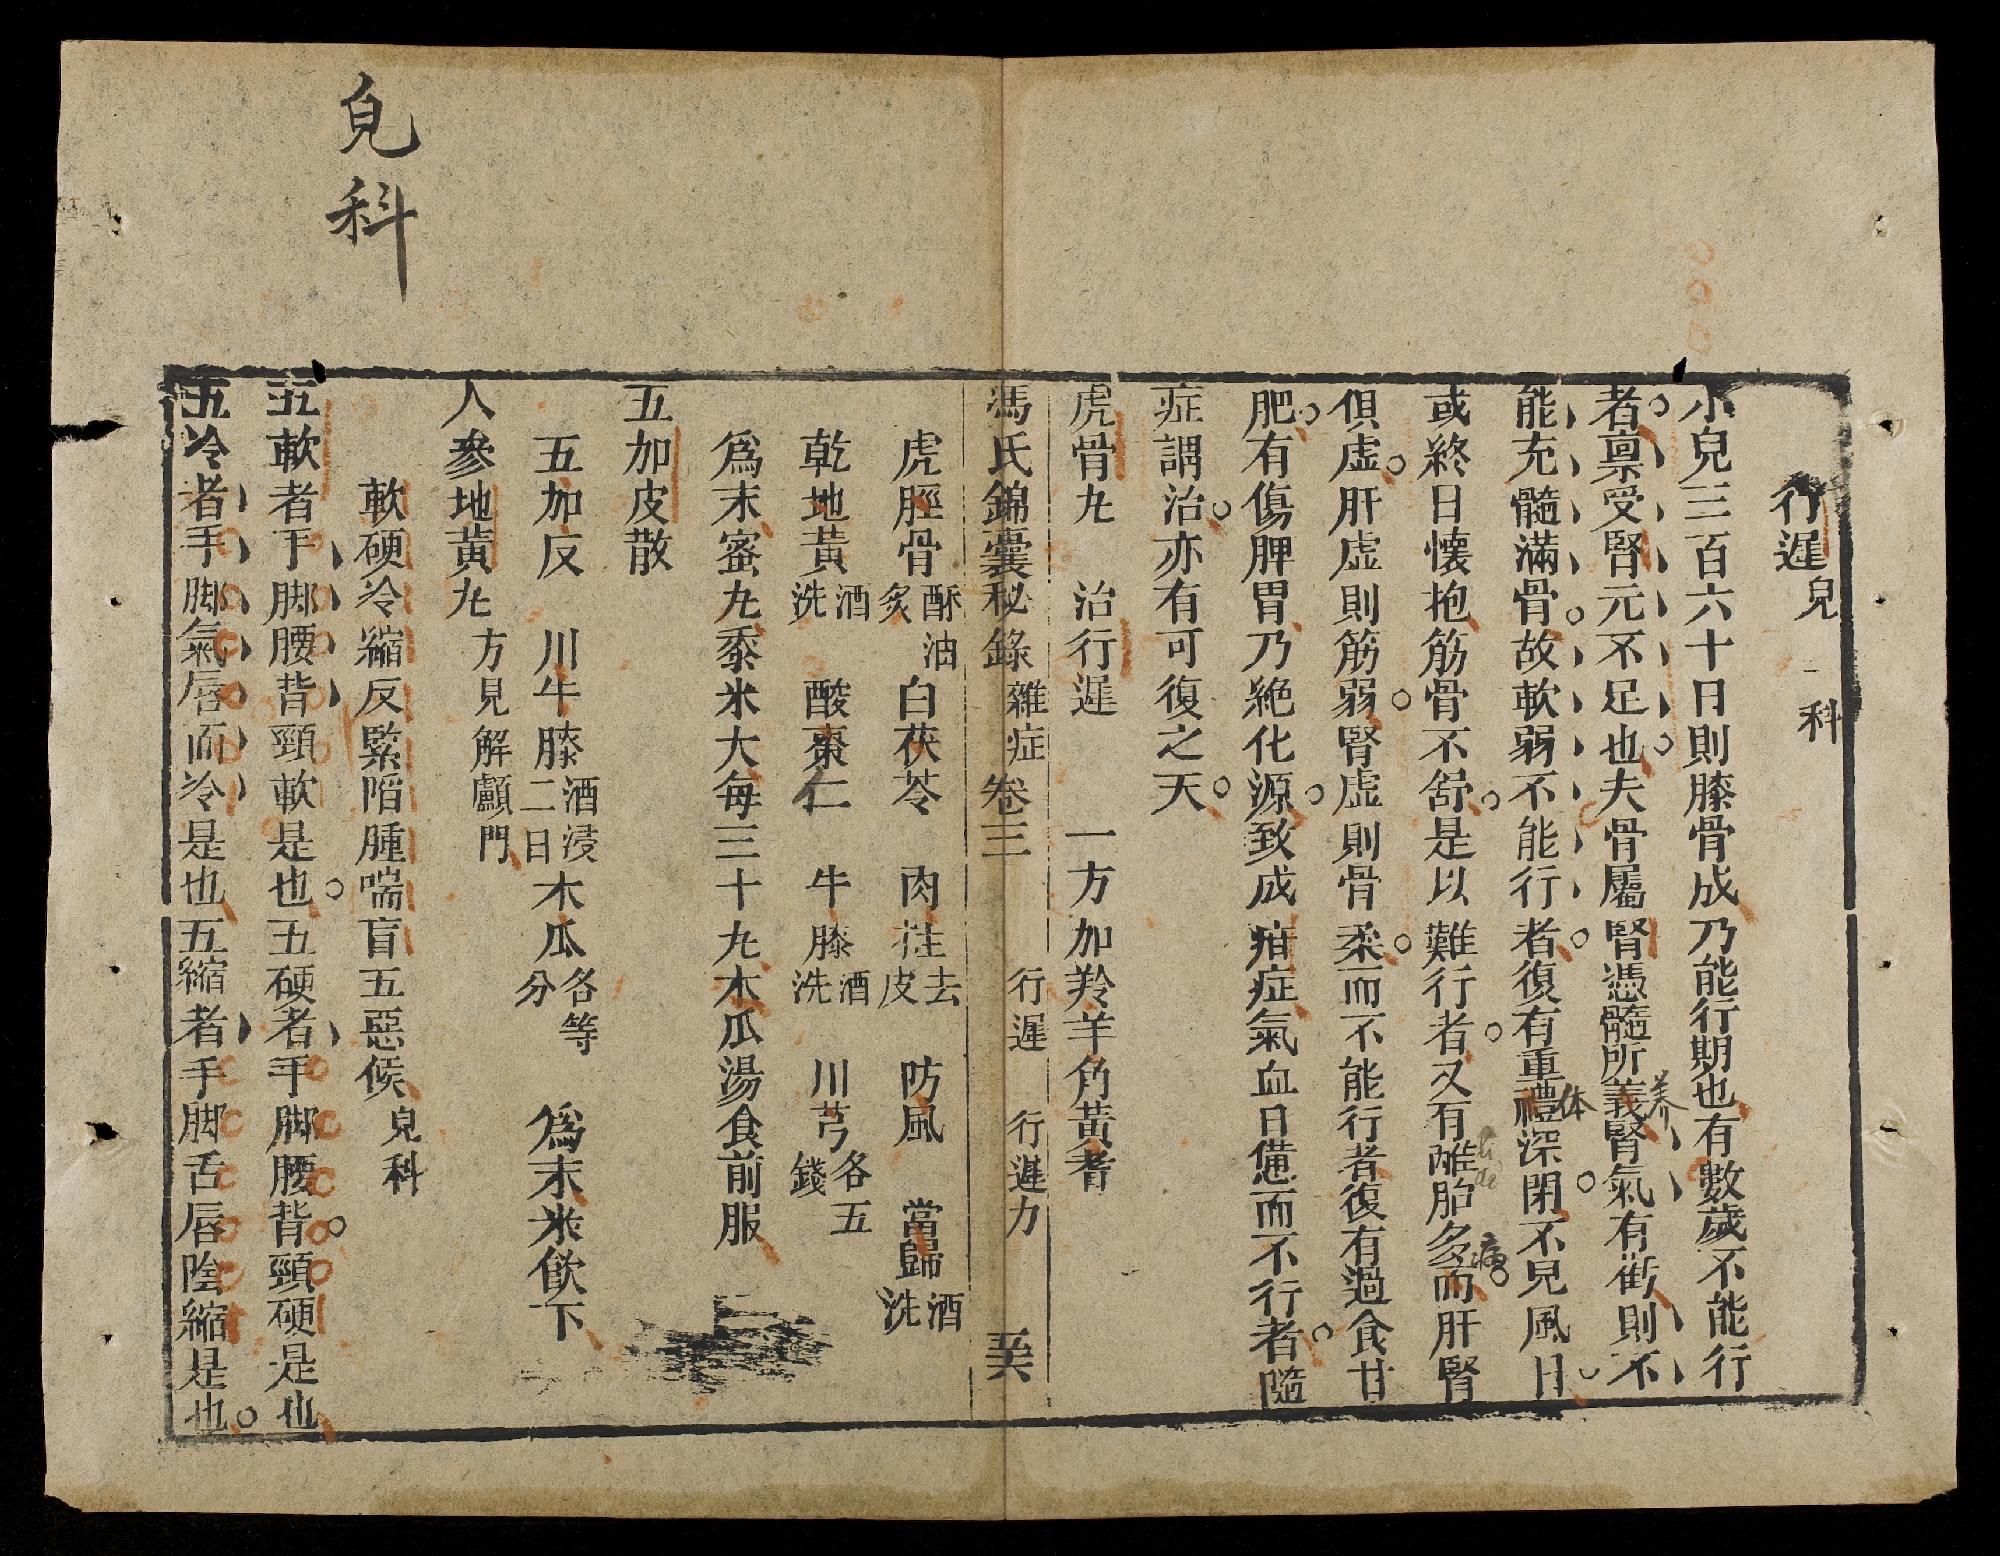 行遲 兒科
小兒三百六十日則膝骨成乃能行期也有數歲不能行
者禀受腎元不足也夫骨屬腎憑髓所義腎氣有虧則不
养
能充髓滿骨故軟弱不能行者復有重禮深閉不見風日
体
或終日懷抱筋骨不舒是以難行者又有離胎多而肝腎
病
俱虛肝虛則筋弱腎虛則骨柔而不能行者復有過食甘
肥有傷脾胃乃絶化源致成疳症氣血日憊而不行者隨
症調治亦有可復之天
虎骨丸 治行遲 一方加羚羊角黃耆
馮氏錦囊秘錄 雜症 卷三 行遲 行遲方
虎脛骨酥油炙 白茯苓 肉桂去皮 防風 當歸酒洗
乾地黃酒洗 酸棗仁 牛膝酒洗 川芎各五錢
爲末蜜丸黍米大每三十丸木瓜湯食前服
五加皮散
五加皮 川牛膝酒浸二日 木瓜各等分 爲末米飲下
人參地黃丸 方見解顱門
軟硬冷縮反緊陷腫喘盲五惡候 兒科
五軟者手脚腰背頸軟是也五硬者手脚腰背頸硬是也
五冷者手脚氣唇面冷是也五縮者手脚舌唇陰縮是也
兒科